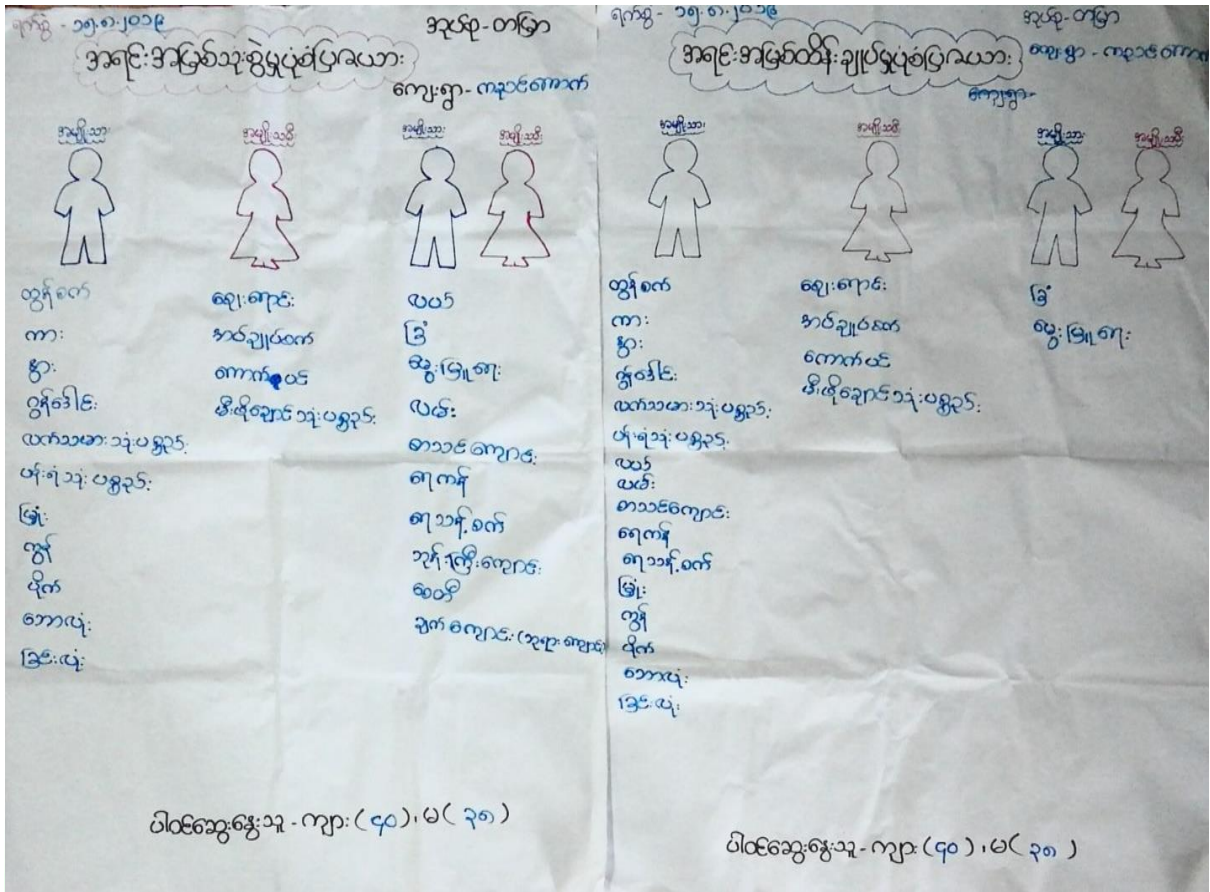 ရက်စွဲ - ၁၅.၈.၂၀၁၉
အုပ်စု - တမြာ
အရင်းအမြစ်သုံးစွဲမှုပုံစံပြဇယား
ကျေးရွာ - ကညင်တောက်
အမျိုးသား
အမျိုးသမီး
အမျိုးသား
အမျိုးသမီး
ထွန်စက်
ကား
နွား
ဂွန်ဒေါင်း
လက်သမားသုံးပစ္စည်း
ပန်းရံသုံးပစ္စည်း
မြှုံး
ကွန်
ပိုက်
ဘောလုံး
ခြင်းလုံး
ဈေးရောင်း
အပ်ချုပ်စက်
ကောက်ပင်
မီးဖိုချောင်သုံးပစ္စည်း
လယ်
ခြံ
မွေးမြူရေး
လမ်း
စာသင်ကျောင်း
ရေကန်
ရေသန့်စက်
ဘုန်းကြီးကျောင်း
စေတီ
ချက်ကျောင်း (ဘုရားကျောင်း)
ပါဝင်ဆွေးနွေးသူ - ကျား (၄၀) ၊ မ (၃၈)
ရက်စွဲ - ၁၅.၈.၂၀၁၉
အုပ်စု - တမြာ
အရင်းအမြစ်ထိန်းချုပ်မှုပုံစံပြဇယား
ကျေးရွာ - ကညင်တောက်
ကျေးရွာ-
အမျိုးသား
အမျိုးသမီး
အမျိုးသား
အမျိုးသမီး
ထွန်စက်
ကား
နွား
ဂွန်ဒေါင်း
လက်သမားသုံးပစ္စည်း
ပန်းရံသုံးပစ္စည်း
လယ်
လမ်း
စာသင်ကျောင်း
ရေကန်
ရေသန့်စက်
မြှုံး
ကွန်
ပိုက်
ဘောလုံး
ခြင်းလုံး
ဈေးရောင်း
အပ်ချုပ်စက်
ကောက်ပင်
မီးဖိုချောင်သုံးပစ္စည်း
ခြံ
မွေးမြူရေး
ပါဝင်ဆွေးနွေးသူ - ကျား (၄၀) ၊ မ (၃၈)